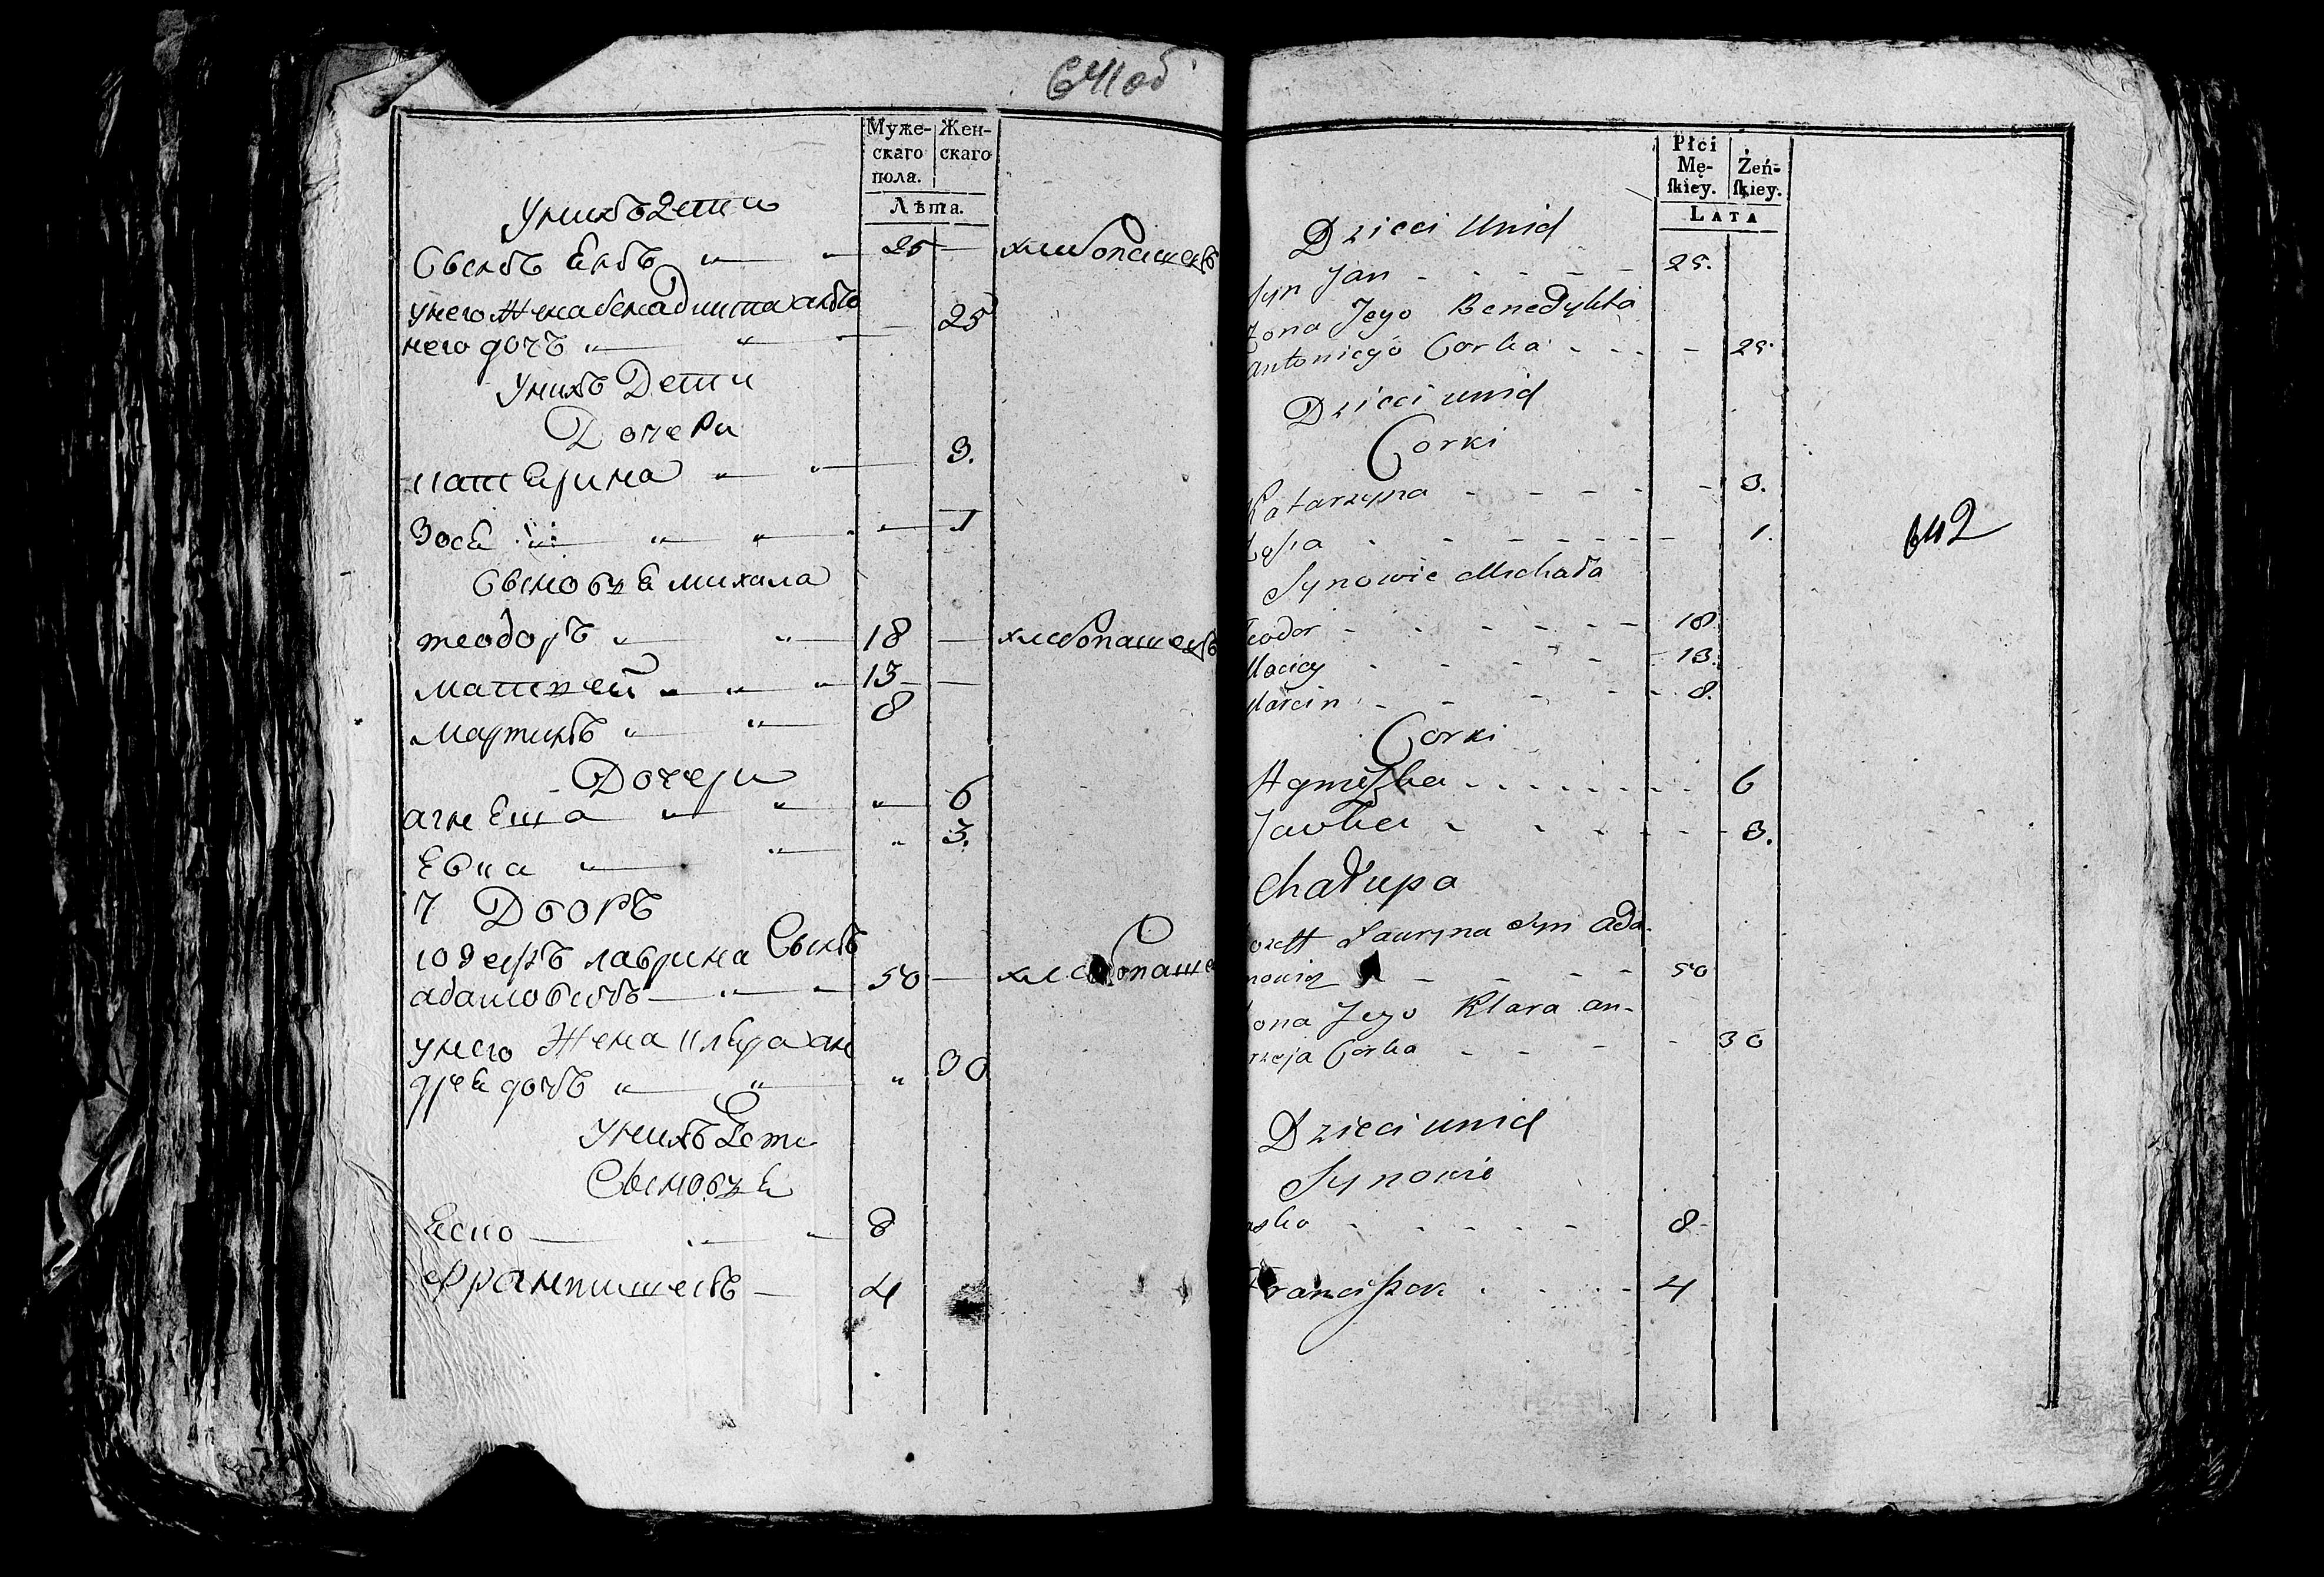 641об
Муже- Жен-
скаго скаго
пола.
Лѣта.
Унихъ дети
Сынъ Янъ 25 хлебопашецъ
унего Жена бенадикта анто
него дочъ 25
Унихъ Дети
Дочери
катерина 3.
Зося 1
Сыновья михала
теодоръ 18 хлебопашецъ
матвей 13
мартинъ 8
Дочери
агнеша 6
Евка 3.
7 Дворъ
юзефъ лаврина Сынъ
адамовичъ 50 хлебопаше
унего Жена клара ан
дрея дочъ 30
унихъ Дети
Сыновья
Яско 8
Францишекъ 4
Płci
Mę- Żeń-
ſkiey. ſkiey.
LATA
Dzieci Unich
Syn Jan 25.
Zona Jego Benedykta
antoniego Corka 25.
Dzieci unich
Corki
Katarzyna 3.
Zosia 1.
Synowie Michała
Teodor 18
Maciey 13.
Marcin 8.
Corki
Agnieszka 6
Jewka 3.
Chałupa
ozeff Lauryna Syn Ada-
mowicz 50
ona Jego Klara an-
rzeja Corka 30
Dzieci unich
Synowie
asko 8
Franciszek 4
642